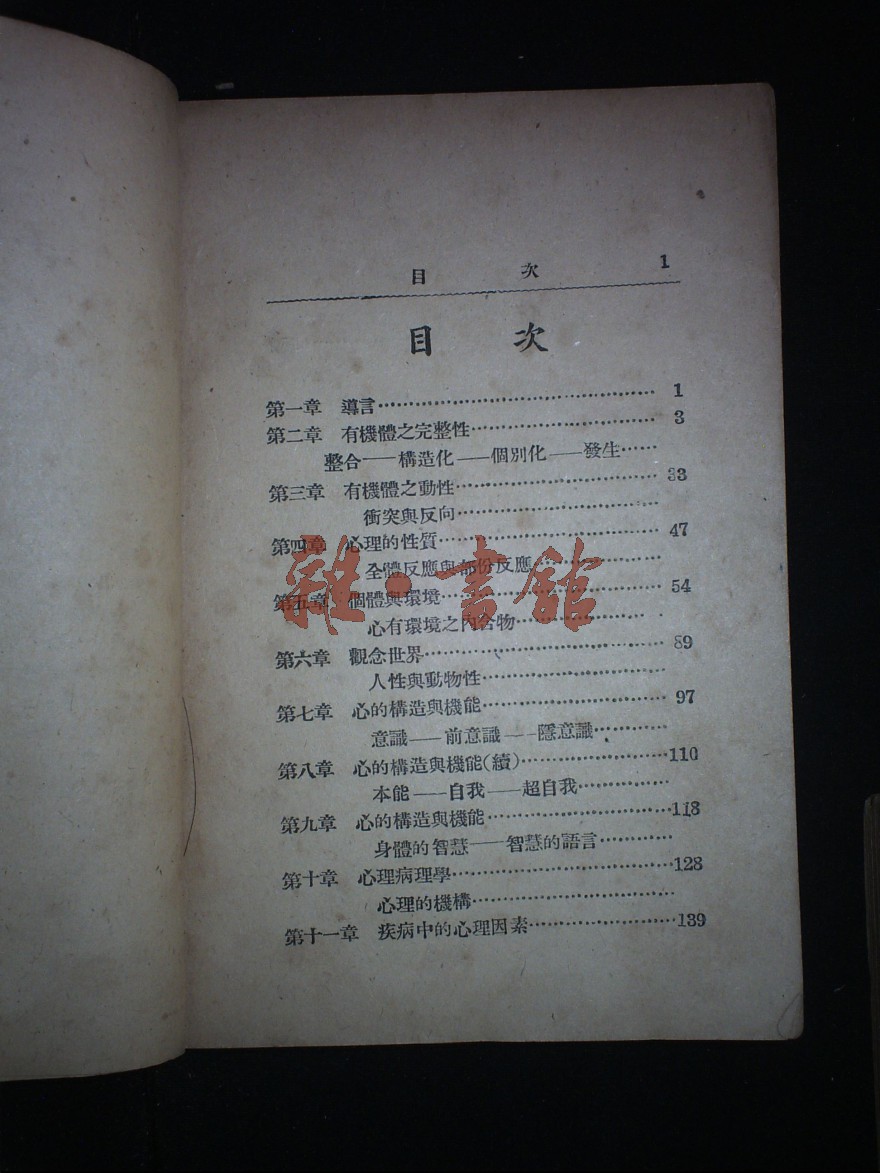 目 次 1
目 次
第一章 導言…………………………………… 1
第二章 有機體之完整性………………………… 3
整合——構造化——個別化——發生……
第三章 有機體之動性…………………………… 33
衝突與反向…………………………
第四章 心理的性質……………………………… 47
全體反應與部份反應………………
第五章 個體與環境……………………………… 54
心有環境之內含物…………………
第六章 觀念世界………………………………… 89
人性與動物性………………………
第七章 心的構造與機能………………………… 97
意識——前意識——隱意識…………
第八章 心的構造與機能(續)……………………110
本能——自我——超自我……………
第九章 心的構造與機能…………………………118
身體的智慧——智慧的語言…………
第十章 心理病理學………………………………128
心理的機構…………………………
第十一章 疾病中的心理因素……………………139
雜·書館